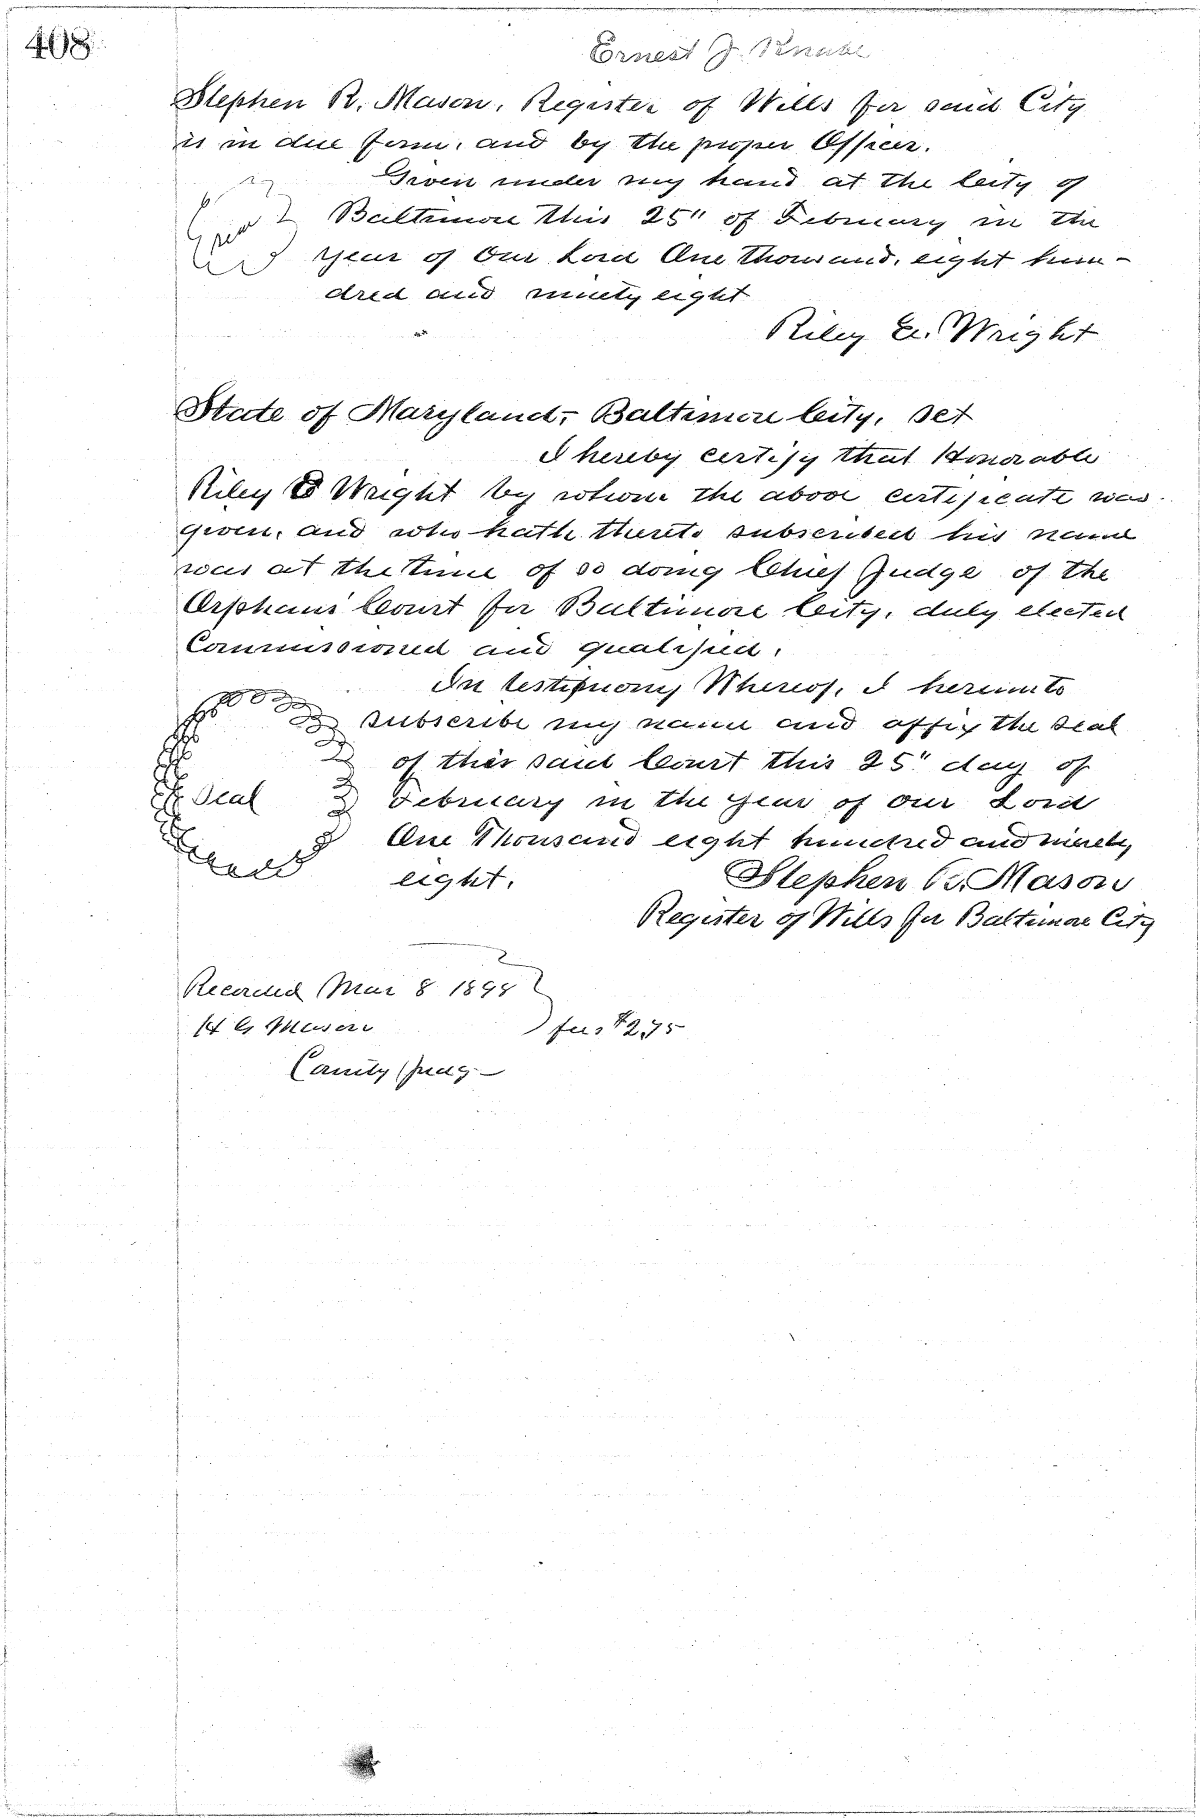 408
Ernest J. Knabe
Stephen R. Mason, Register of Wills for said City
is in due form, and by the proper Officer.
Given under my hand at the City of
Baltimore this 25" of February in the
year of Our Lord One thousand, eight hun-
dred and ninety eight
Riley E. Wright
State of Maryland, Baltimore City, set
I hereby certify that Honorable
Riley E Wright by whom the above certificate was
given, and who hath thereto subscribed his name
was at the time of so doing Chief Judge of the
Orphans' Court for Baltimore City, duly elected
Commissioned and qualified.
In testimony Whereof, I hereunto
subscribe my name and affix the seal
of this said Court this 25" day of
Seal
February in the year of our Lord
One Thousand eight hundred and ninety
eight.
Stephen R. Mason
Register of Wills for Baltimore City
Recorded Mar 8 1898
Mason
fees $2.75
County Judge